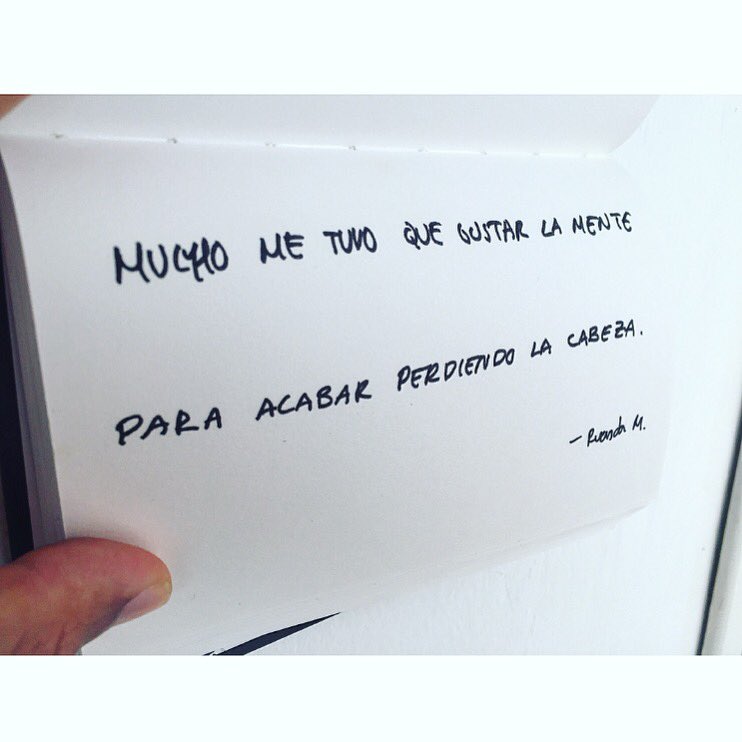 MUCHO ME TUVO QUE GUSTAR LA MENTE
PARA ACABAR PERDIENDO LA CABEZA.
- Ruanda M.